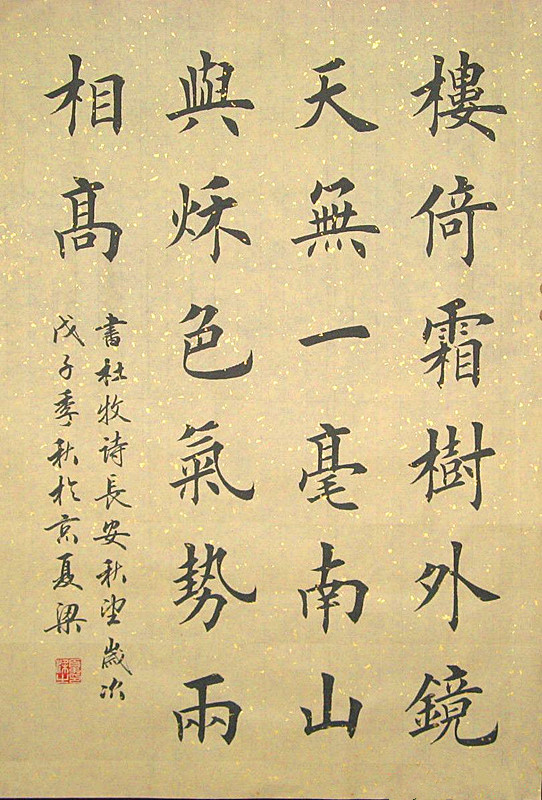 樓倚霜樹外鏡
天無一毫南山
與秌色氣勢兩
相高
書杜牧诗長安秋望歲次
戊子季秋於京夏梁